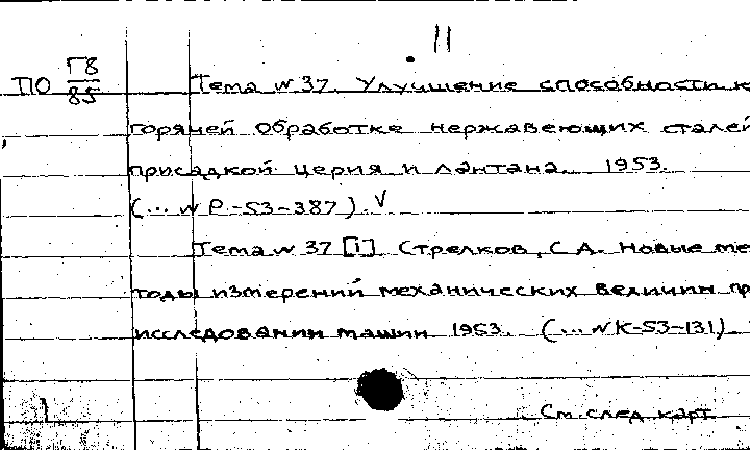 11
ПО Г8/85 Тема № 37. Улучшение способности к
горячей обработке нержавеющих сталей
присадкой церия и лантана. 1953.
(... № Р-53-387) V
Тема № 37 [1] Стрелков, С.А. Новые ме-
тоды измерений механических величин пр
исследовании машин 1953. (... № К-53-131)
См. след. карт.